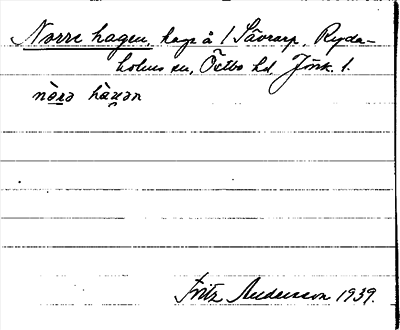 Norre hagen, hage å 1 Sävrarp, Ryda-
holms sn, Östbo hd, Jönk. l.
nòrə hàɡən
Fritz Andersson 1939.